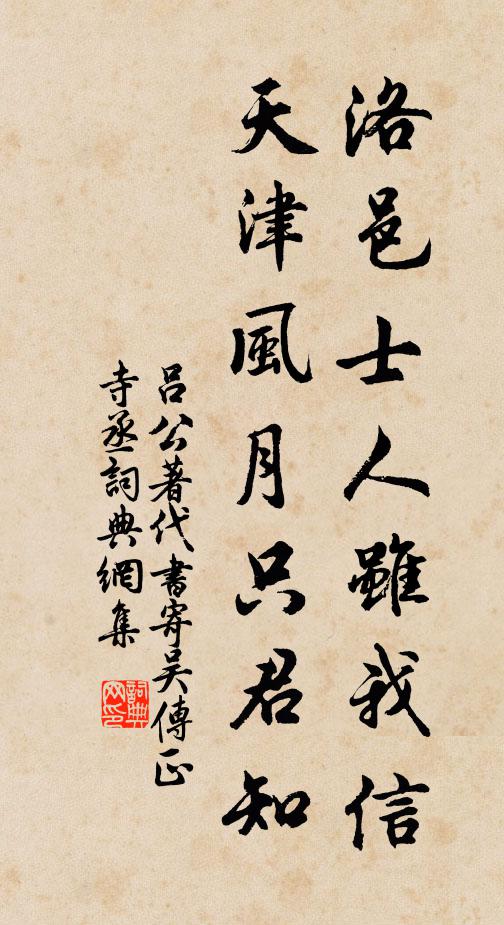 洛邑士人雖我信
天津風月只君知
呂公著代書寄吳傳正
寺丞詞典網集
詞典网印